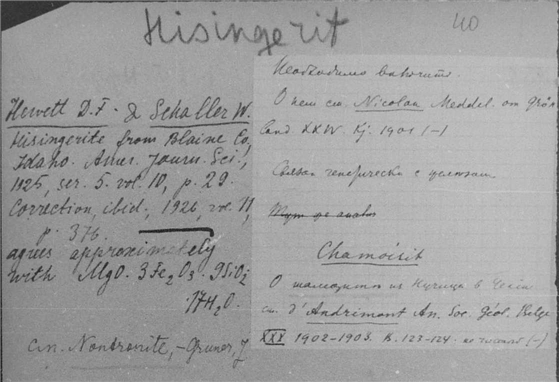 Hisingerit
40
Hewett D.F. & Schaller W.
Hisingerite from Blaine Co,
Idaho. Amer. Journ. Sci.,
1925, ser. 5. vol. 10, p. 29.
Correction, ibid., 1926, vol. 11,
p. 376.
agrees approximately
with MgO. 3Fe2O3. 9SiO2
17H2O.
см. Nontronite, - Gruner, J
Необходимо
О нем см. Nicolau Meddel. om Grön
land XXIV. Kj. 1901 (-)
Связан генетически с
Chamoisit
О шамозите из Нучица в Чехии
см. d'Andrimont An. Soc. Géol. Belge
XXX 1902-1903. B. 123-124. (-)